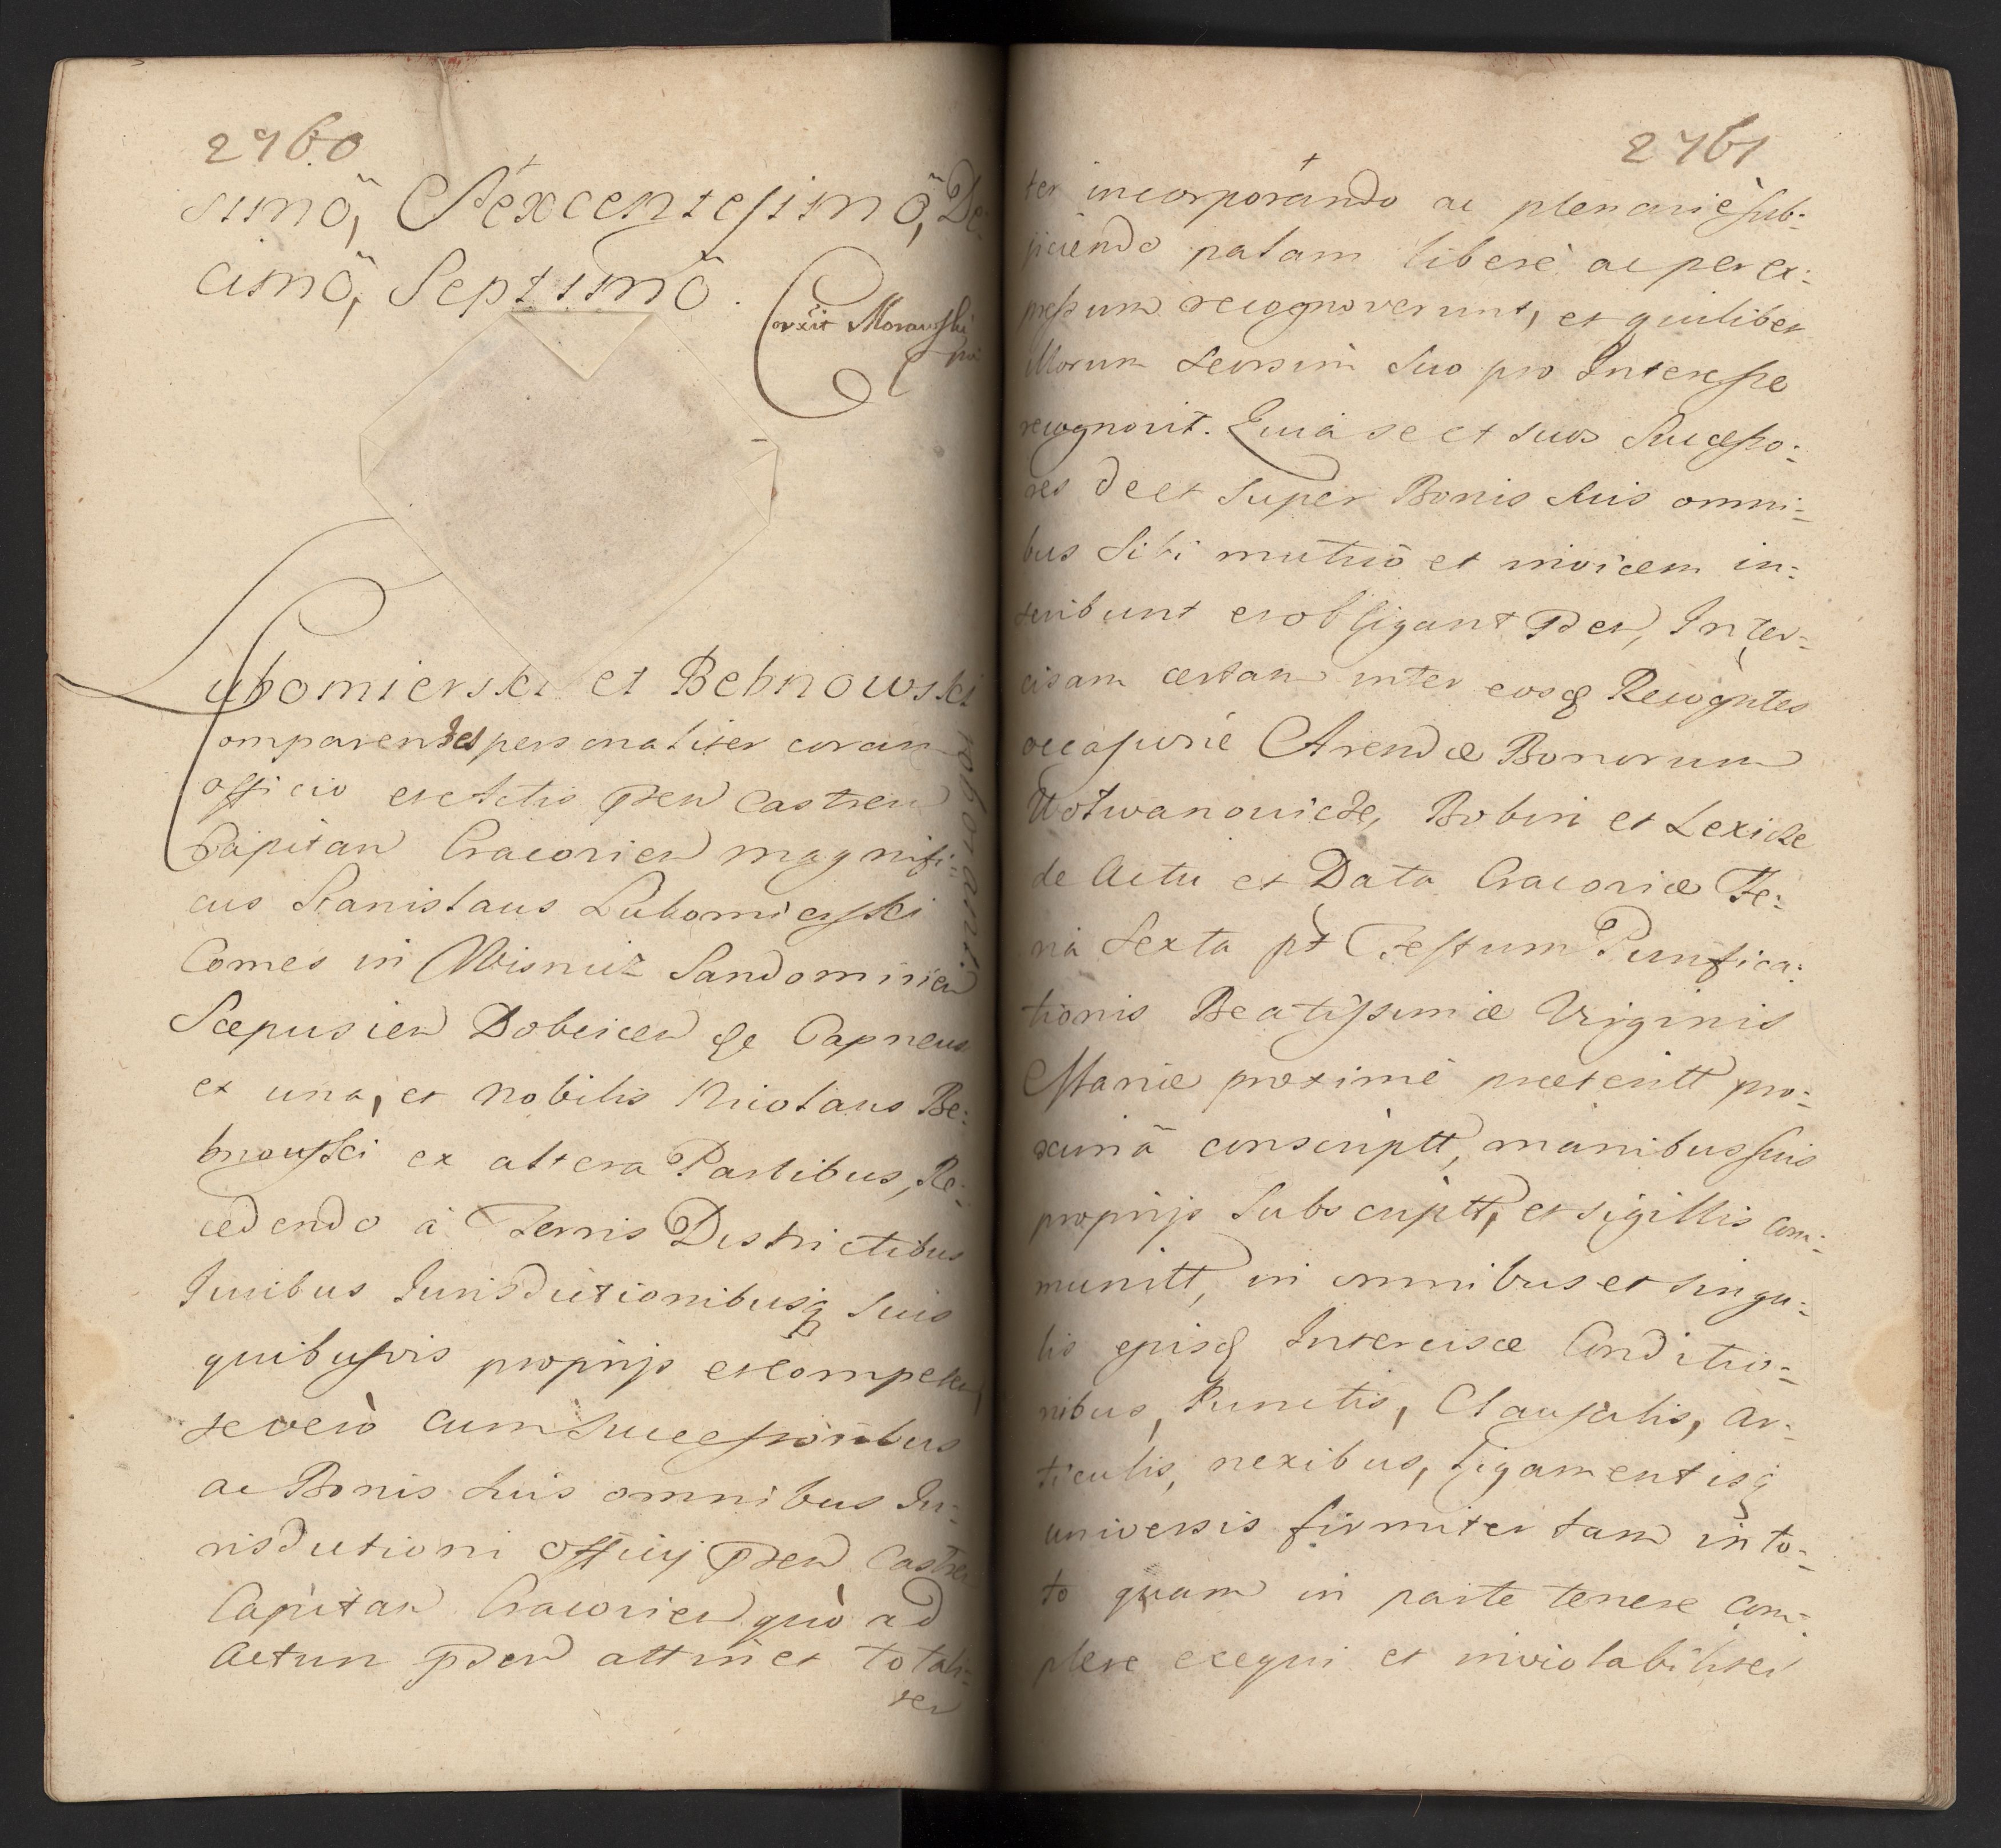 2760
simo, Sexcentesimo, De-
cimo, Septimo.
Corxit Morawski
mp
Lubomierski et Bebnowski
roborant
Comparentes personaliter coram
officio et Actis pnten Castren
Capitan Cracovien magnifi-
cus Stanislaus Lubomierski
Comes in Wisnicz Sandomirien
Scepusien Dobcicen
ex una, et Nobilis Nicolaus Be-
bnowski ex altera Partibus, Re-
cedendo à Terris Districtibus
Iuribus Iurisdictionibusq suis
quibusvis proprijs et competen
se vero cum successoribus
ac Bonis suis omnibus Iu-
risdictioni officij pnten Castren
Capitan Cracovien quò ad
Actum pnten attinet totali-
ter
2761
ter incorporando ac plenariè sub-
jiciendo palam liberè ac per ex-
pressum recognoverunt, et quilibet
illorum seorsim suo pro Interesse
recognovit. Quia se et suos Successo-
res de et super Bonis suis omni-
bus sibi mutuò et invicem in-
scribunt et obligant Per, Inter-
cisam certam inter eosq Recogntes
occasione Arendæ Bonorum
Wolwanowicze, Bobin et Lexicze
de Actu et Data Cracoviæ Fe-
ria Sexta pt Festum Purifica-
tionis Beatissimæ Virginis
Mariæ proximè præteritt pro-
ximâ conscriptt, manibus suis
proprijs subscriptt, et sigillis com-
munitt, in omnibus et singu-
lis ejusq Intercisæ Conditio-
nibus, Punctis, Clausulis, Ar-
ticulis, nexibus, ligamentisq
universis firmiter tam in to-
to quam in parte tenere com-
plere exequi et inviolabiliter